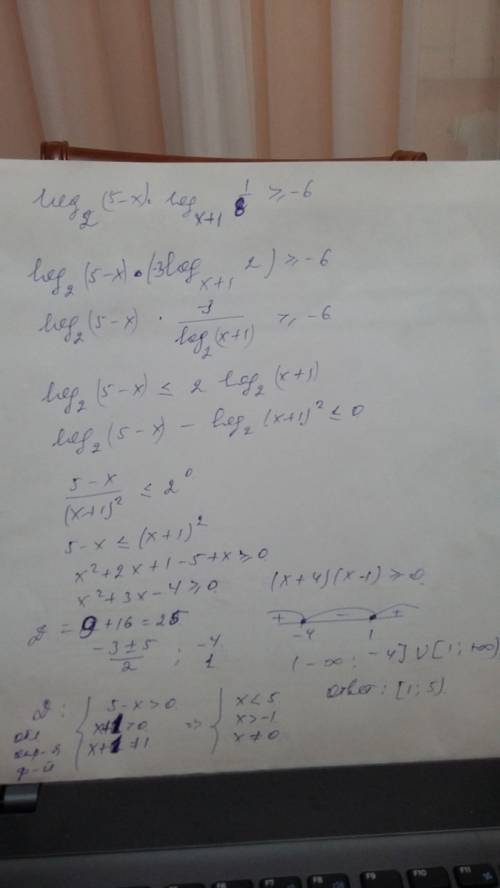 log₂(5-x)·log_{x+1} 1/8 ≥ -6
log₂(5-x)·(-3log_{x+1} 2) ≥ -6
log₂(5-x) · -3/log₂(x+1) ≥ -6
log₂(5-x) ≤ 2 log₂(x+1)
log₂(5-x) - log₂(x+1)² ≤ 0
5-x/(x+1)² ≤ 2⁰
5-x ≤ (x+1)²
x²+2x+1-5+x ≥ 0
x²+3x-4 ≥ 0
D = 9+16 = 25
-3±5/2 ; -4 1
(x+4)(x-1) ≥ 0
+ - +
-4 1
(-∞; -4] ∪ [1; +∞)
Ответ: [1; 5)
D: { 5-x>0 x+1>0 x+1≠1 => { x<5 x>-1 x≠0
F6 F7 F8 F9 F10 F11